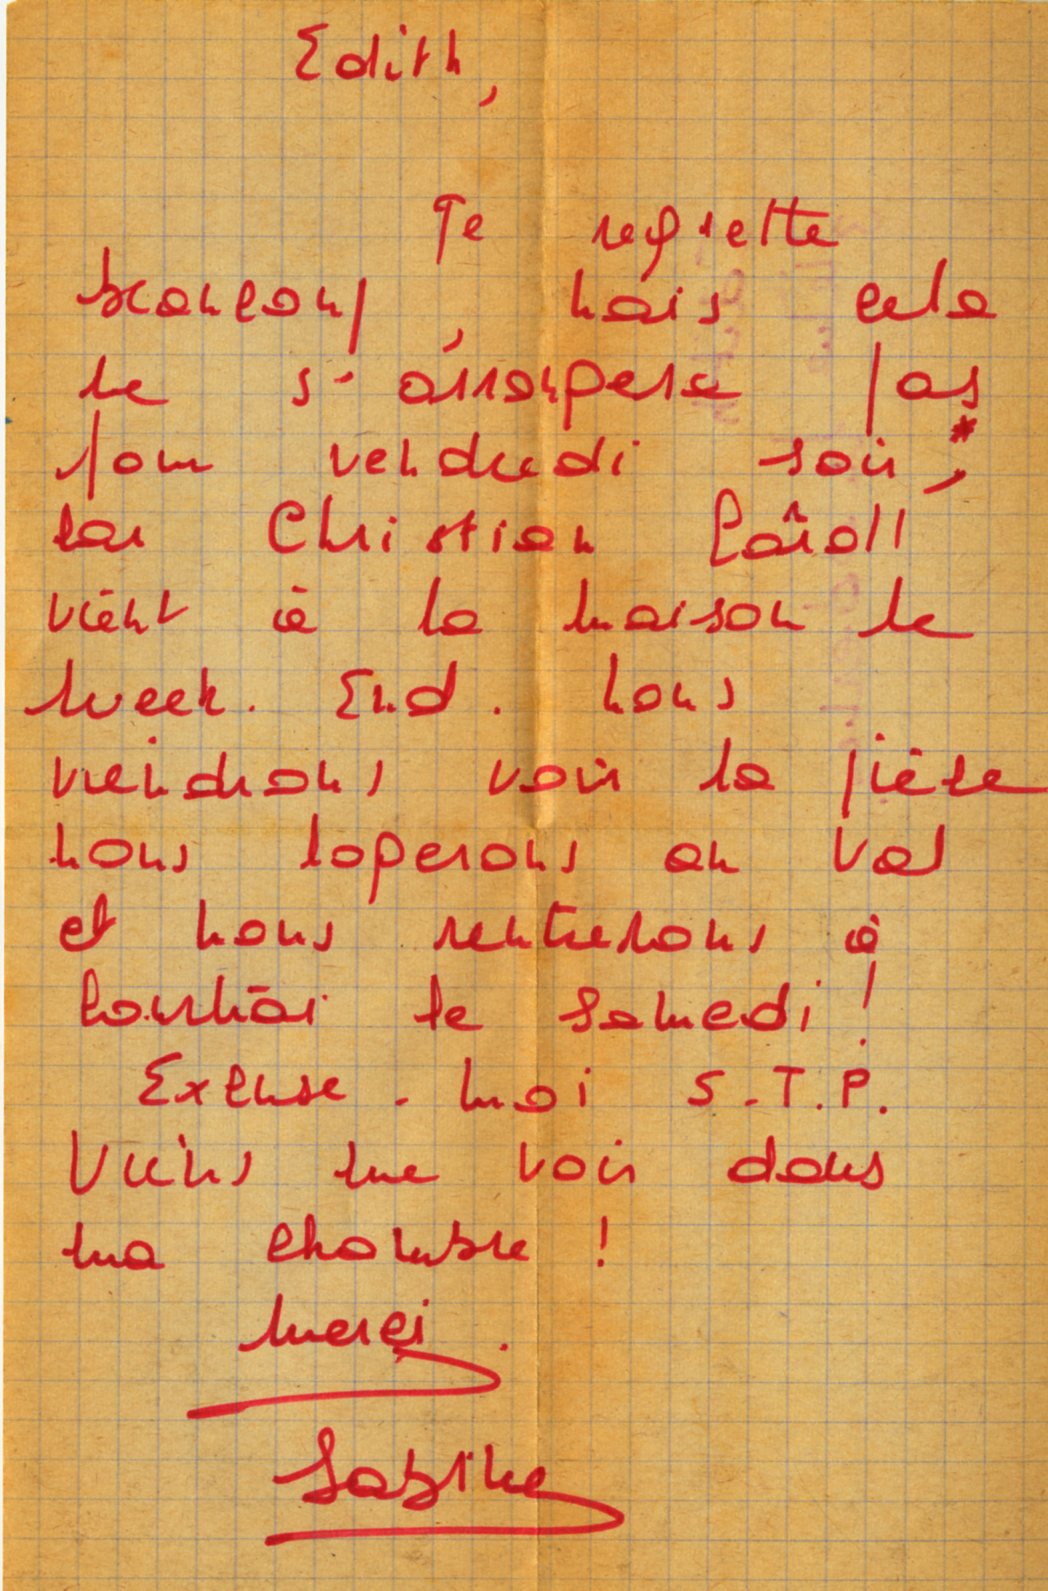 Edith,
Je regrette
beaucoup, mais cela
ne s'arrangera pas
pour vendredi soir,*
car Christian Caroll
vient à la maison le
week-End. nous
viendrons voir la pièce
nous logerons au Val
et nous rentrerons à
le samedi !
Excuse-moi S.T.P.
Viens me voir dans
ma chambre !
Merci.
Sabine